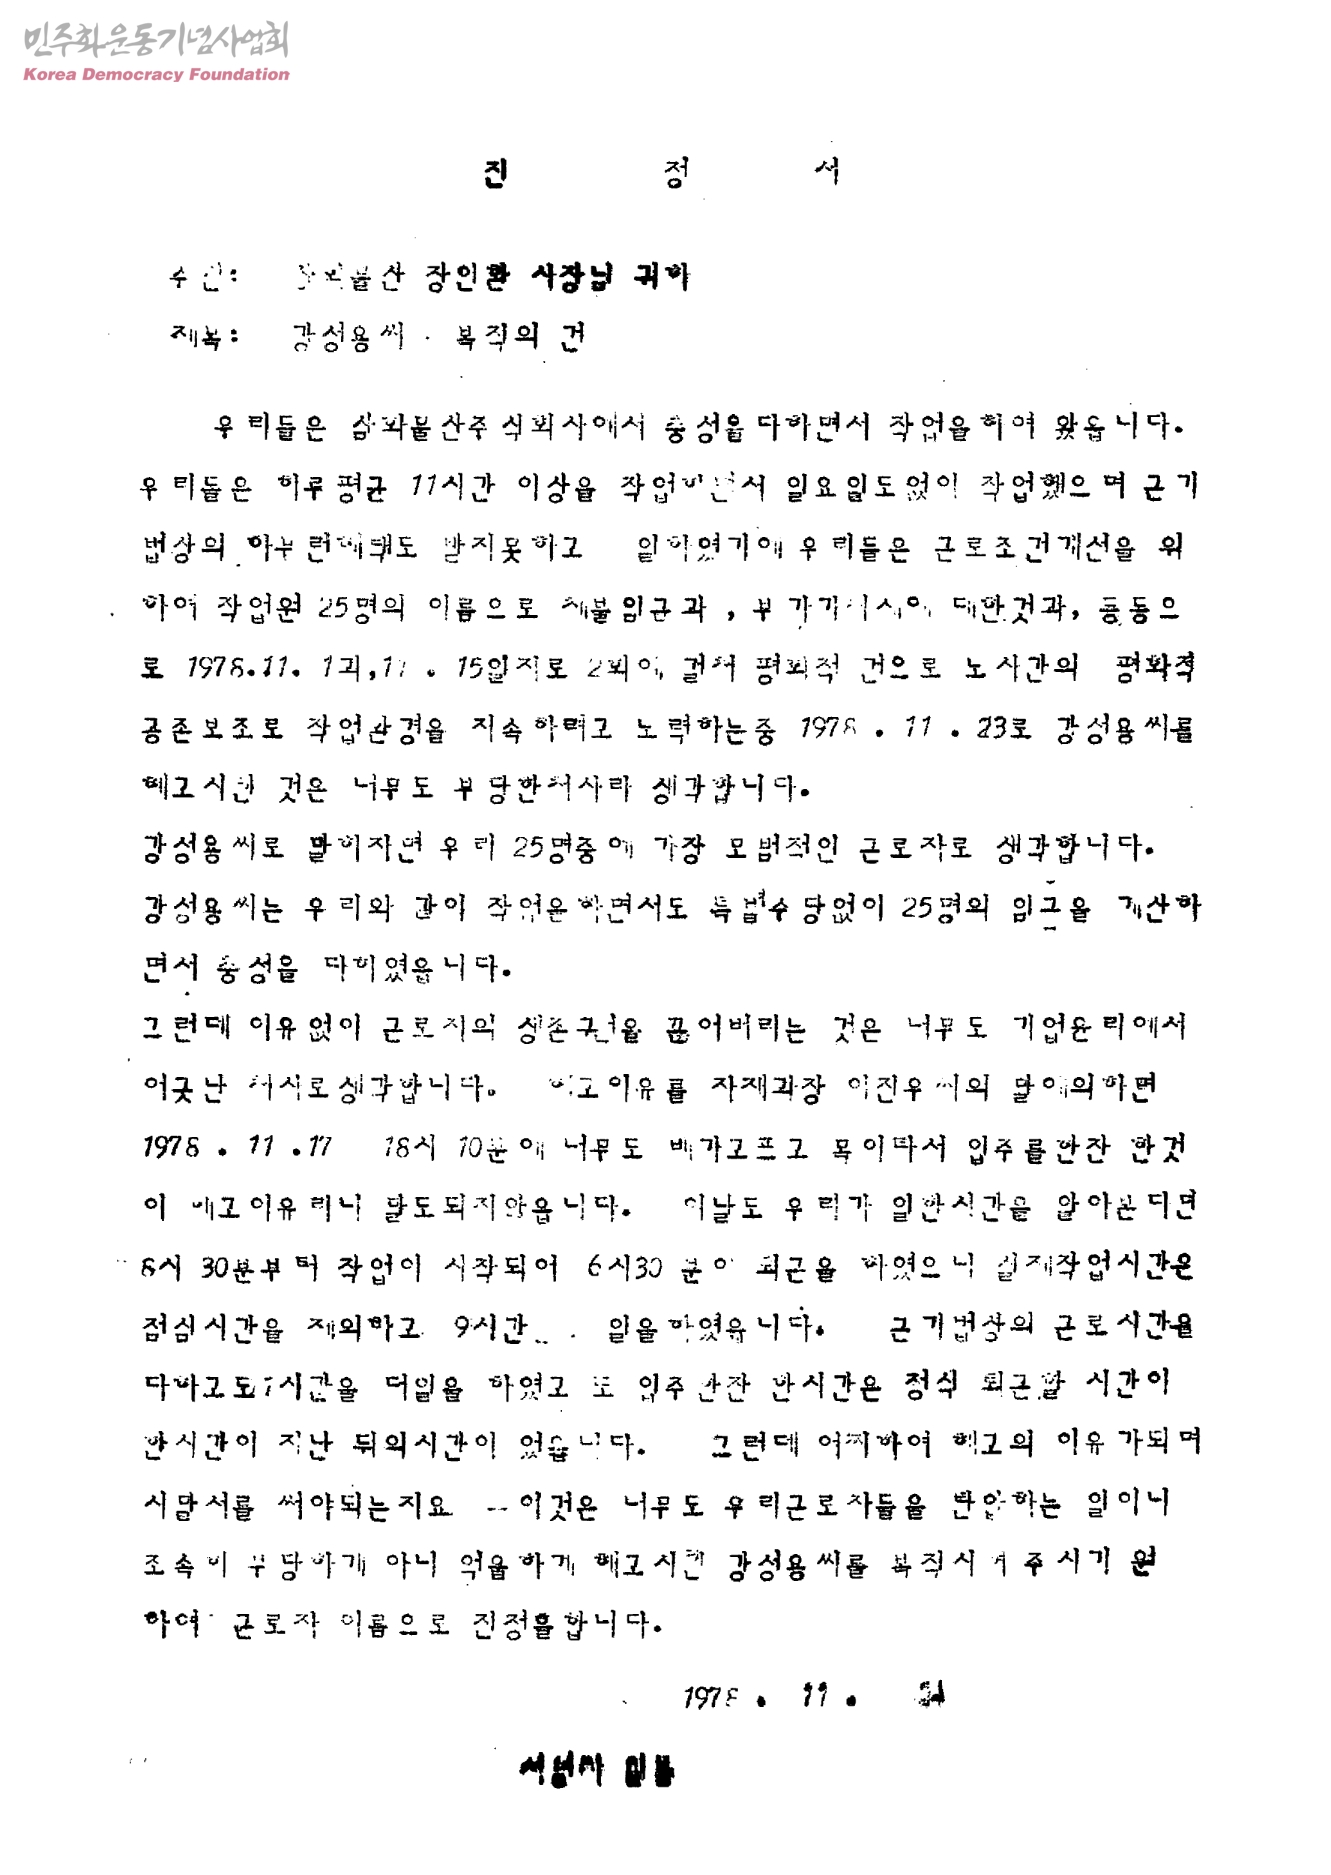 민주화운동기념사업회
Korea Democracy Foundation
진 정 서
수신: 물산 장인환 사장님 귀하
제목: 강성용씨 복직의 건
우리들은 삼화물산주식회사에서 충성을다하면서 작업을하여 왔읍니다.
우리들은 하루평균 11시간 이상을 작업하면서 일요일도없이 작업했으며 근기
법상의 하부런혜택도 받지못하고 일하였기에 우리들은 근로조건개선을 위
하여 작업원 25명의 이름으로 체불임금과, 대한것과, 등등으
로 1978.11. 1과,11 . 15일자로 2회에 걸쳐 평화적 건으로 노사간의 평화적
공존보조로 작업환경을 지속하려고 노력하는중 1978 . 11 . 23로 강성용씨를
해고시킨 것은 너무도 부당한처사라 생각합니다.
강성용씨로 말하자면 우리 25명중에 가장 모범적인 근로자로 생각합니다.
강성용씨는 우리와 같이 작업을하면서도 특별수당없이 25명의 임금을 계산하
면서 충성을 다하였읍니다.
그런데 이유없이 근로자의 생존권을 끊어버리는 것은 너무도 기업윤리에서
어긋난 처사로생각합니다. 해고이유를 자재과장 이진우씨의 말에의하면
1978 . 11 .17 18시 10분에 너무도 배가고프고 목이타서 입주를한잔 한것
이 해고이유라니 말도되지않읍니다. 이날도 우리가 일한시간을 알아본다면
8시 30분부터 작업이 시작되어 6시30분에 퇴근을 하였으니 실제작업시간은
점심시간을 제외하고 9시간 일을하였읍니다. 근기법상의 근로시간을
다하고도1시간을 더일을 하였고 또 입주한잔 한시간은 정식 퇴근할 시간이
한시간이 지난 뒤의시간이 었읍니다. 그런데 어찌하여 해고의 이유가되며
시말서를 써야되는지요 이것은 너무도 우리근로자들을 탄압하는 일이니
조속히 부당하게 아니 억울하게 해고시킨 강성용씨를 복직시켜주시기 원
하여 근로자 이름으로 진정을합니다.
1978 . 11 .
서명자 일동